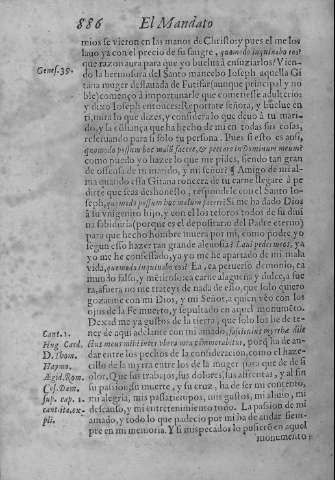 886 El Mandato
mios se vieron en las manos de Christo, y pues el me los
lauo ya con el precio de su sangre, quomodo inquinabo eos?
que razon aura para que yo buelua à ensuziarlos? Vien-
Genes. 39. do la hermosura del Santo mancebo Ioseph aquella Gi
tana muger desalmada de Putifar (aunque principal y no
ble) començò à importunarle que cometiesse adulterio,
y dixo Ioseph entonces: Reportate señora, y buelue en
ti, mira lo que dizes, y considera lo que deuo à tu mari-
do, y la cõfiança que ha hecho de mi en todas sus cosas,
reseruando para si solo tu persona. Pues si esto es assi,
quomodo possum hoc malũ facere, & peccare in Dominum meum?
como puedo yo hazer lo que me pides, siendo tan gran
de ofensa de tu marido, y mi señor? ¶ Amigo de mi al-
ma quando essa Gitana ronçera de tu carne llegare à pe
dirte que seas deshonesto, responde le con el Santo Io-
seph, quomodo possum hoc malum facere? Si me ha dado Dios
à su vnigenito hijo, y con el los tesoros todos de su diui
na sabiduria (porque es el depositario del Padre eterno)
para que hecho hombre muera por mi, como puedo yo
segun esso hazer tan grande aleuosia? Laui pedes meos, ya
yo me he confessado, ya yo me he apartado de mi mala
vida, quomodo inquinabo eos? Ea, ea peruerso demonio, ea
mundo falso, y mentirosa carne alagueña y dulce, a fue
ra, afuera, no me trateys de nada de esso, que solo quiero
gozarme con mi Dios, y mi Señor, a quien veo con los
ojos de la Fe muerto, y sepultado en aquel monumẽto.
Dexad me ya gustos de la tierra, que solo los he de te-
Cant. 1. ner de aqui adelante con mi amado, fasciculus myrrhæ dile
Hug. Card. ctus meus mihi inter vbera mea commorabitur, porq̃ ha de an-
D. Thom. dar entre los pechos de la consideracion, como el haze-
Haymo. cillo de la myrra entre los de la muger para que de de si
Ægid. Rom. olor. Que sus trabajos, sus dolores, sus afrentas, y al fin
Cęs. Dam. su passion, su muerte, y su cruz, ha de ser mi contento,
sup. cap. 1. mi alegria, mis passatiempos, mis gustos, mi aliuio, mi
cant. ita. ex- descanso, y mi entretenimiento todo. La passion de mi
plic. amado, y todo lo que padecio por mi ha de andar siem-
pre en mi memoria. Y si mis pecados lo pusierõ en aquel
monumento;